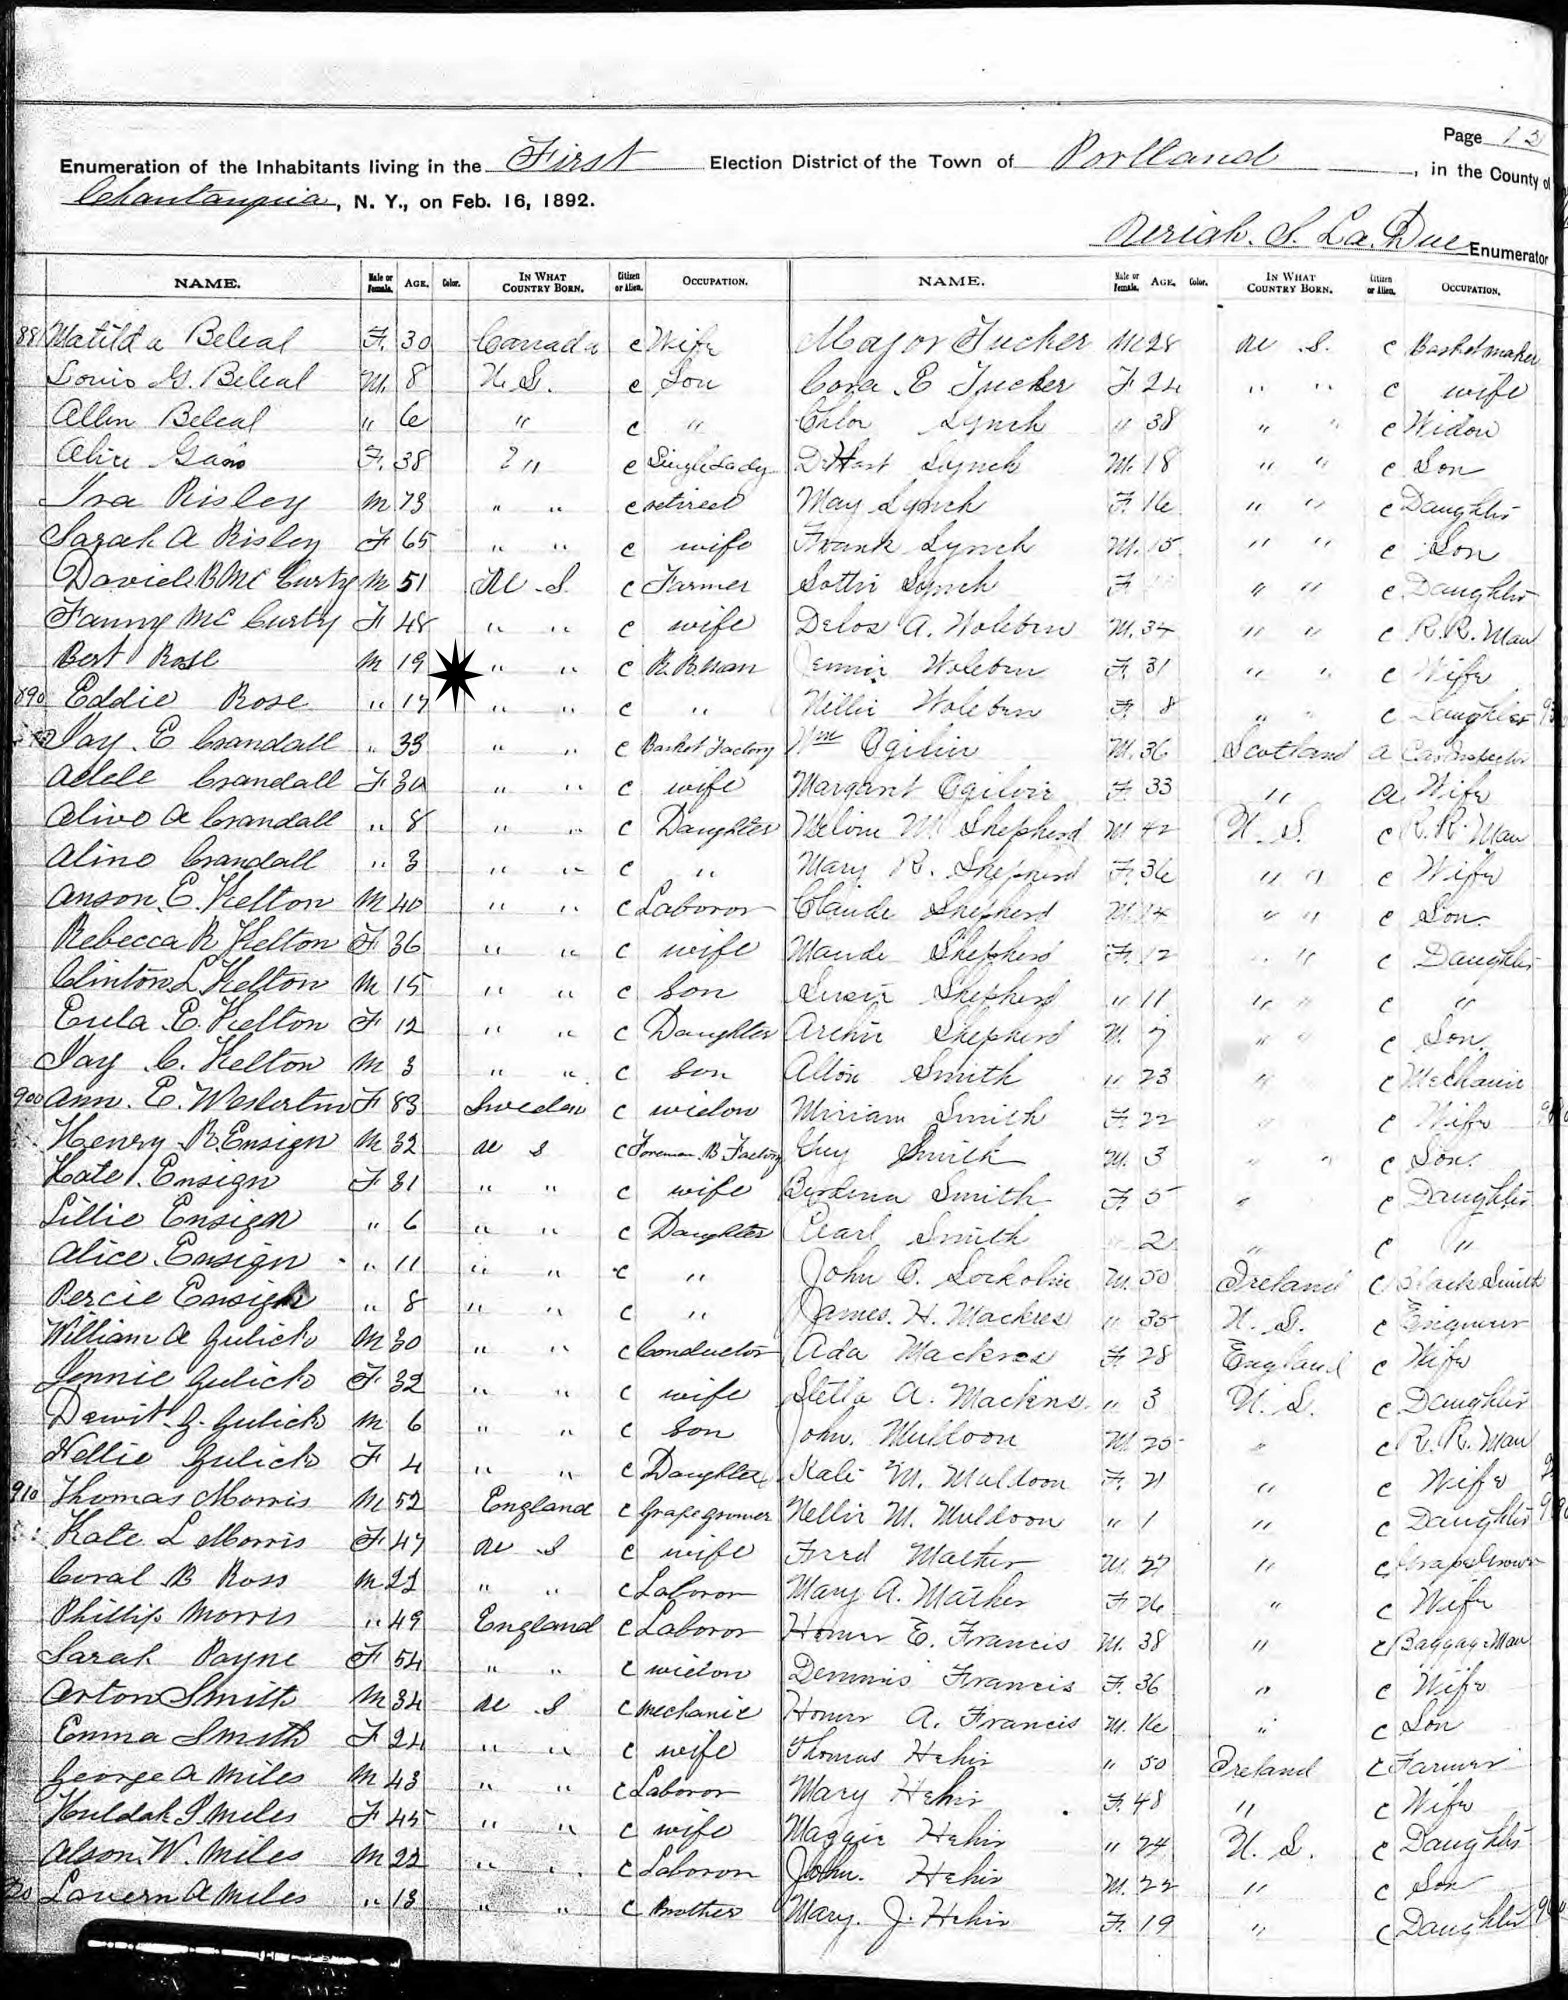 Page 12
Enumeration of the Inhabitants living in the First Election District of the Town of Portland, in the County of
Chautauqua, N. Y., on Feb. 16, 1892.
Neriah. S. La. Due Enumerator
NAME. Male or Female. AGE. Color. IN WHAT COUNTRY BORN. Citizen or Alien. OCCUPATION.
881 Matilda Beleal F. 30 Canada c Wife
Louis G. Beleal M. 8 U. S. c Son
Allen Beleal " 6 " c "
Alice F. 38 " c Single Lady
Ira Risley M 73 " " c retired
Sarah A Risley F 65 " " c wife
David B Mc Curty M 51 U. S. c Farmer
Fanny Mc Curty F 48 " " c wife
Bert Rose M 19 " " c R. R. Man
890 Eddie Rose " 17 " " c "
Jay. E Crandall " 33 " " c Basket Factory
Adele Crandall F 30 " " c wife
Olive A Crandall " 8 " " c Daughter
Aline Crandall " 3 " " c "
Anson. E. Kelton M 40 " " c Laboror
Rebecca R Kelton F 36 " " c wife
Clinton L Kelton M 15 " " c Son
Eula E. Kelton F 12 " " c Daughter
Jay C. Kelton M 3 " " c Son
900 Ann. E. F 83 Sweden c widow
Henry B. Ensign M 32 U S c Foreman B Factory
Kate Ensign F 31 " " c wife
Lillie Ensign " 6 " " c Daughter
Alice. Ensign " 11 " " c "
Percie Ensign " 8 " " c "
William A Gulick M 30 " " c Conductor
Jennie Gulick F 32 " " c wife
Dewit. G. Gulick M 6 " " c Son
Nellie Gulick F 4 " " c Daughter
910 Thomas Morris M 52 England c Grape grower
Kate L Morris F 47 U S c wife
Coral B Ross M 22 " " c Laboror
Phillip Morris " 49 England c Laboror
Sarah Payne F 54 " " c widow
Arton Smith M 34 U S c mechanic
Emma Smith F 24 " " c wife
George A Miles M 43 " " c Laboror
Huldah P. Miles F 45 " " c wife
Alson. W. Miles M 22 " " c Laboror
20 Lavern A Miles " 13 " " c Brother
NAME. Male or Female. AGE. Color. IN WHAT COUNTRY BORN. Citizen or Alien. OCCUPATION.
Major Tucker M 28 U. S. c Basket maker
Cora. E Tucker F 24 " " c wife
Chloe Lynch " 38 " " c Widow
DeHart Lynch M. 18 " " c Son
May Lynch F. 16 " " c Daughter
Frank Lynch M. 15 " " c Son
Lottie Lynch F " " c Daughter
Delos A. Woleben M. 34 " " c R. R. Man
Jennie Woleben F. 31 " " c Wife
Nellie Woleben F. 8 " " c Daughter
Wm Ogilvie M. 36 Scotland a Car Inspector
Margaret Ogilvie F. 33 " a Wife
Melvin M. Shepherd M 42 U. S. c R. R. Man
Mary R. Shepherd F. 36 " " c Wife
Claude Shepherd M 14 " " c Son
Maude Shepherd F. 12 " " c Daughter
Susie Shepherd " 11 " " c "
Archie Shepherd M. 7 " " c Son.
Alton Smith " 23 " c Mechanic
Miriam Smith F. 22 " c Wife
Guy Smith M. 3 " " c Son.
Smith F. 5 " c Daughter
Pearl Smith " 2 " c "
John O. M. 50 Ireland c Black Smith
James. H. Mackres " 35 U. S. c Engineer
Ada Mackres F 28 England c Wife
Stella A. Mackres " 3 U. S. c Daughter
John. Muldoon M 25 " c R. R. Man
Kate M. Muldoon F. 21 " c Wife
Nellie M. Muldoon " 1 " c Daughter
Fred Mather M 27 " c Grape Grower
Mary A. Mather F 26 " c Wife
Homer E. Francis M. 38 " c Baggage Man
Francis F. 36 " c Wife
Homer A. Francis M. 16 " c Son
Thomas Hehir " 50 Ireland c Farmer
Mary Hehir F. 48 " c Wife
Maggie Hehir " 24 U. S. c Daughter
John. Hehir M. 22 " c Son
Mary. J. Hehir F. 19 " c Daughter